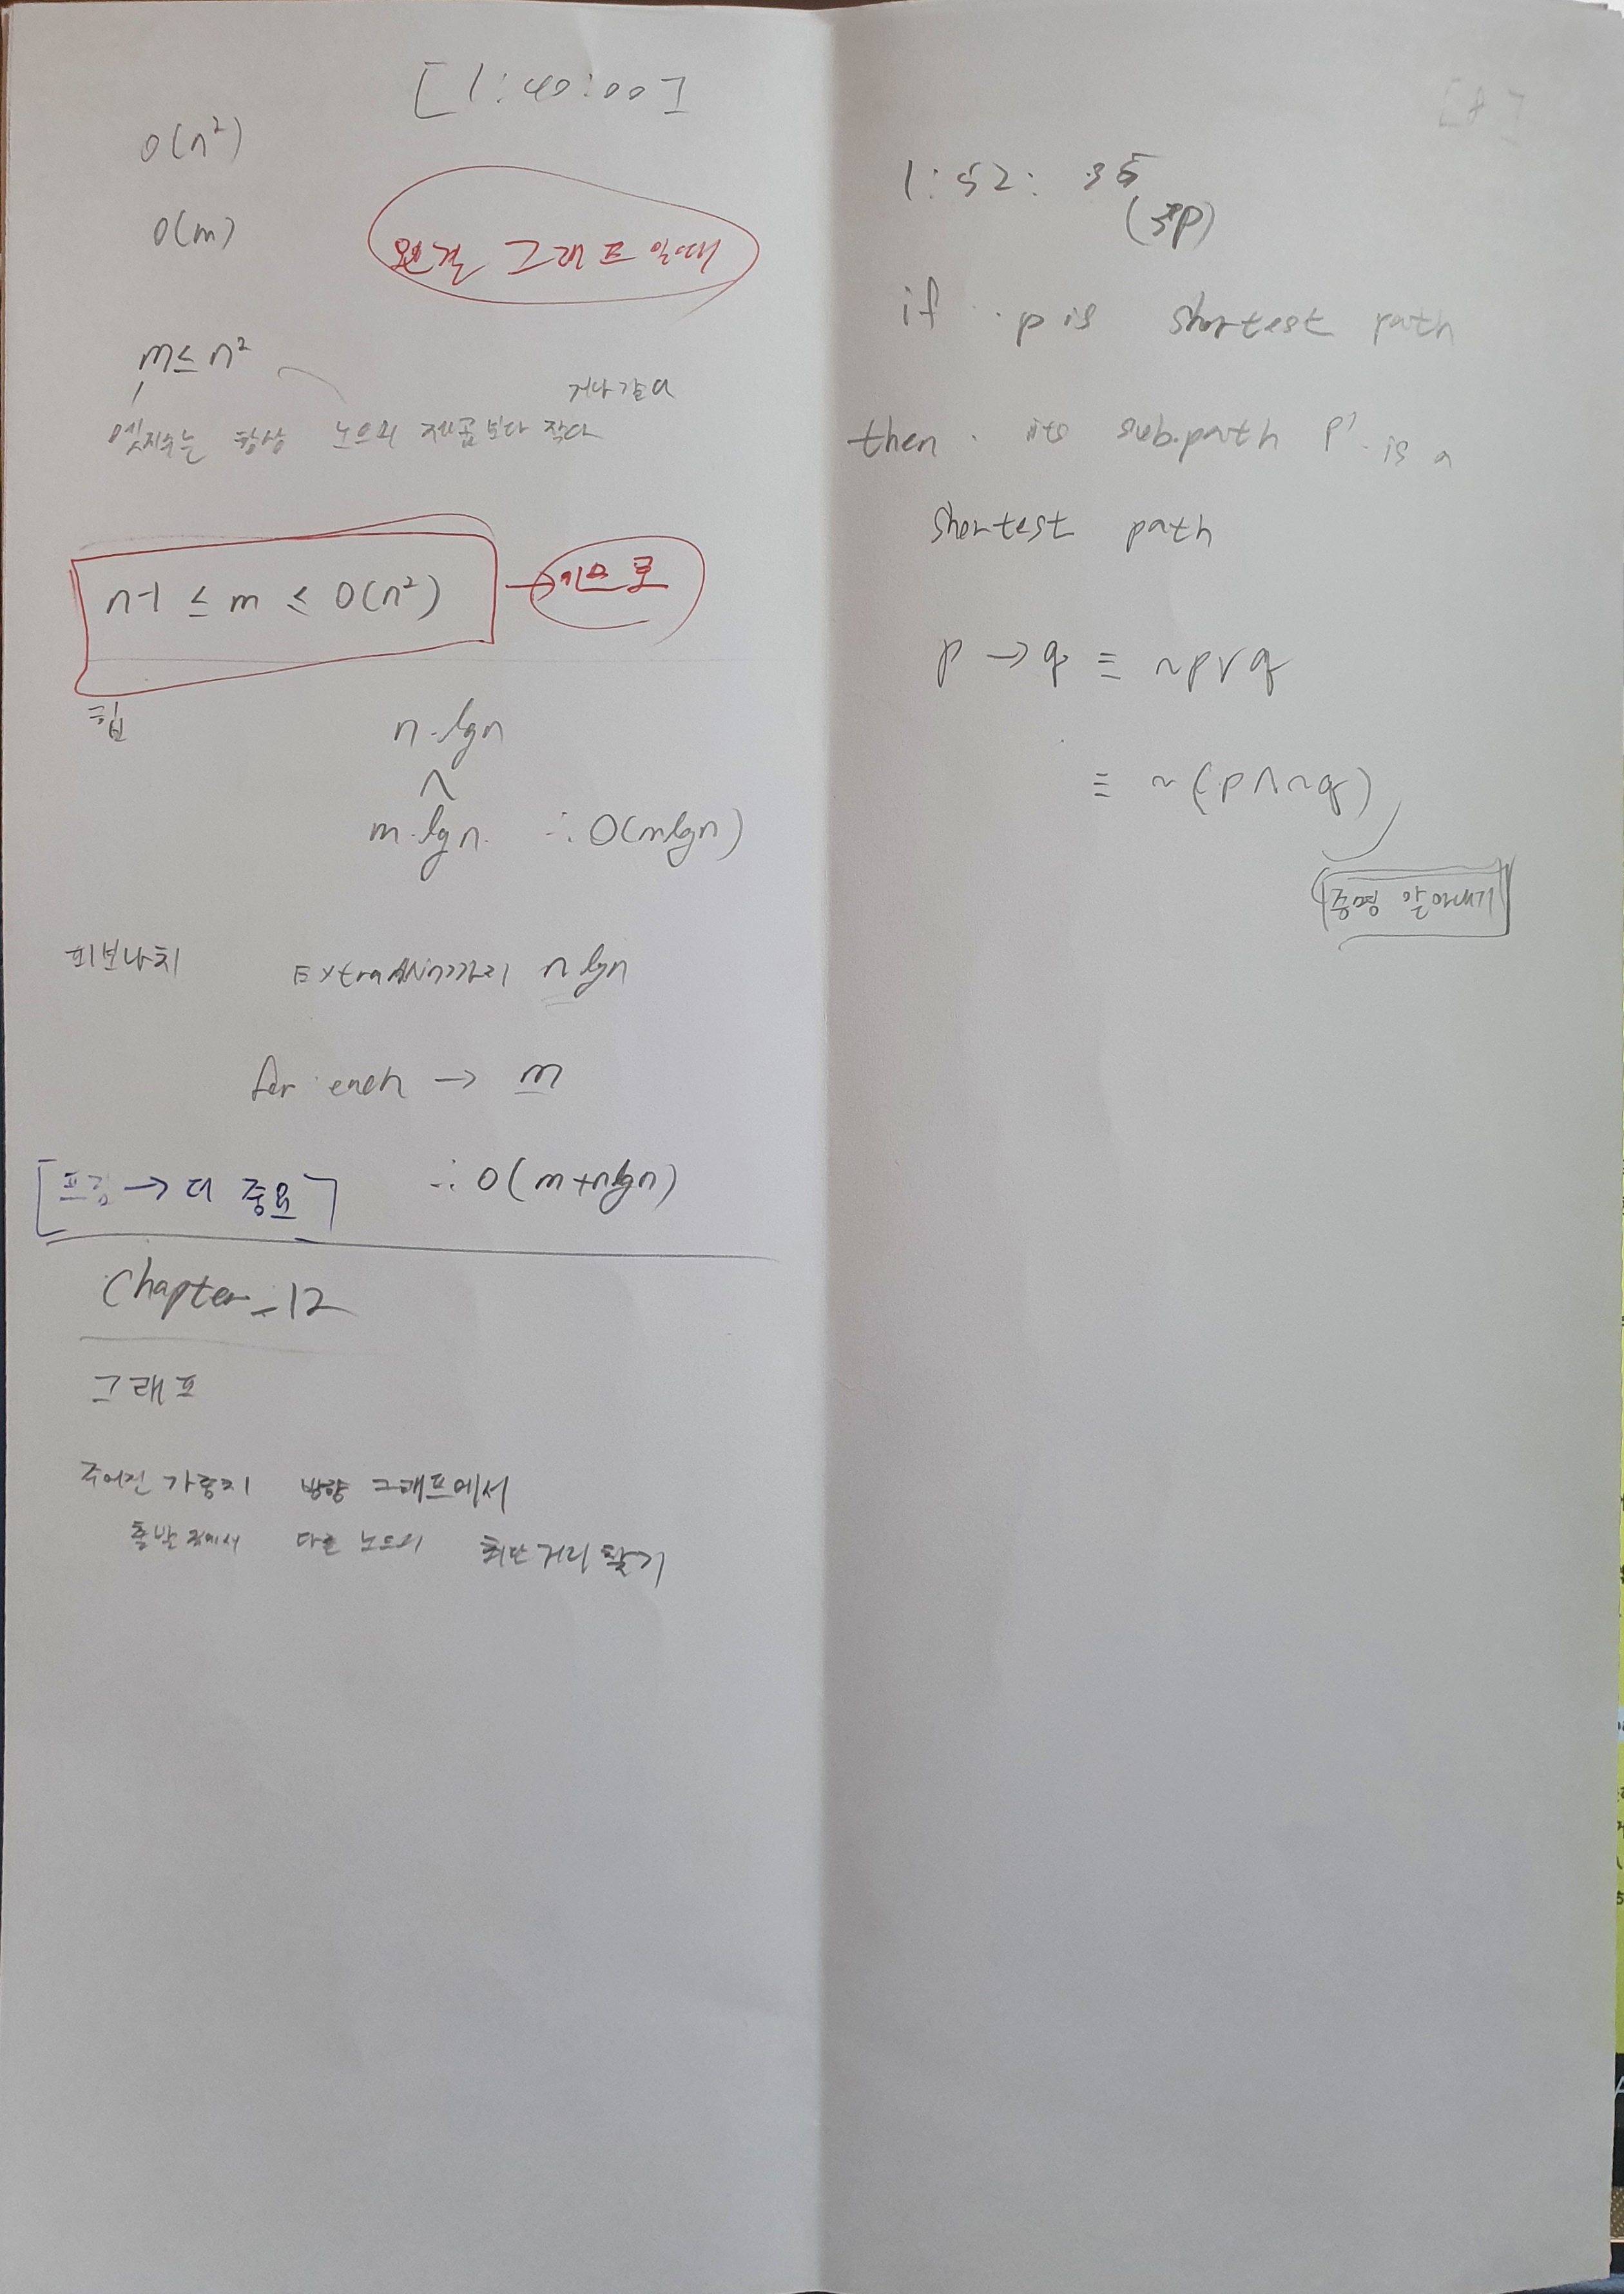 [1:40:00]
O(n²)
O(m)
연결 그래프 일때
m ≤ n²
거나 같다
엣지수는 항상 노드의 제곱보다 작다
n-1 ≤ m ≤ O(n²) →
힙
n·lgn
∧
m·lgn. ∴ O(mlgn)
피보나치
까지 n lgn
for each → m
[프림 → 더 중요] ∴ O(m+nlgn)
Chapter_12
그래프
주어진 가중치 방향 그래프에서
출발점에서 다른 노드의 최단거리 찾기
[8]
1:52:35
(3P)
if p is shortest path
then its subpath p' is a
shortest path
p → q ≡ ~p∨q
≡ ~(p∧~q)
증명 알아내기